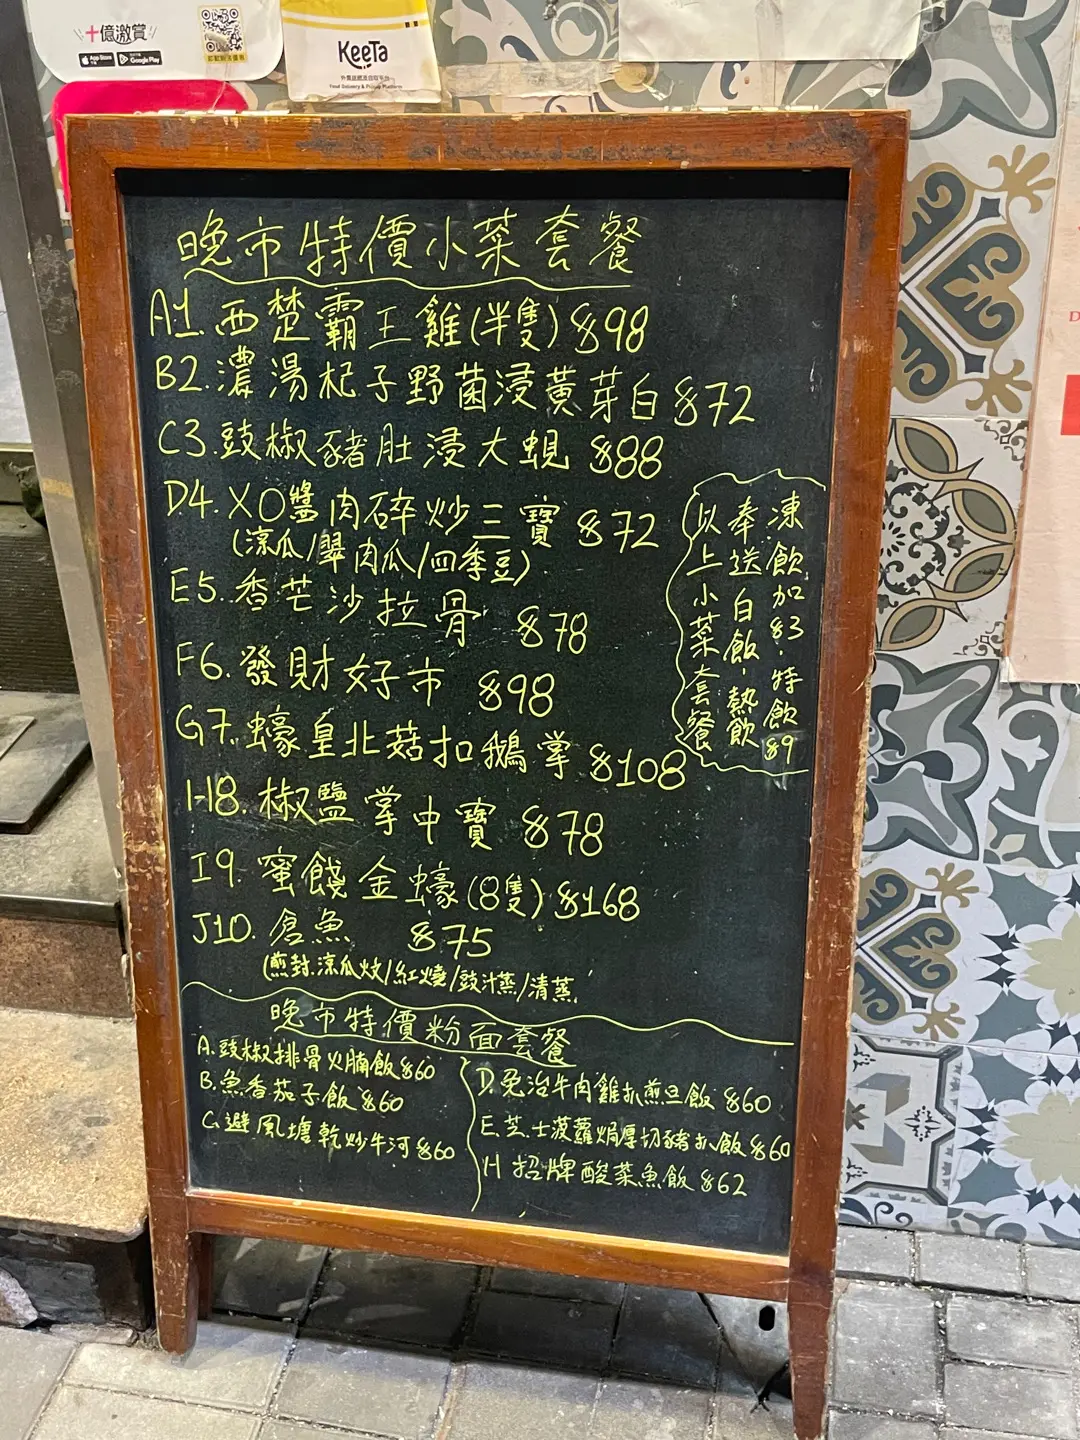 十億激賞
App Store
Google Play
KeeTa
Food Delivery & Pickup Platform
晚市特價小菜套餐
A1.西楚霸王雞(半隻)$98
B2.濃湯杞子野菌浸黄芽白$72
C3.豉椒豬肚浸大蜆 $88
D4.XO醬肉碎炒三寶 $72
(涼瓜/翠肉瓜/四季豆)
E5.香芒沙拉骨 $78
F6.發財好市 $98
G7.蠔皇北菇扣鵝掌 $108
H8.椒鹽掌中寶 $78
I9.蜜餞金蠔(8隻)$168
J10.倉魚 $75
(煎封.涼瓜炆/紅燒/豉汁蒸/清蒸
以上小菜套餐
奉送白飯、熱飲
凍飲加$3.特飲$9
晚市特價粉面套餐
A.豉椒排骨火腩飯$60
B.魚香茄子飯$60
C.避風塘乾炒牛河$60
D.免治牛肉雞扒煎旦飯$60
E.芝士菠蘿焗厚切豬扒飯$60
H 招牌酸菜魚飯$62